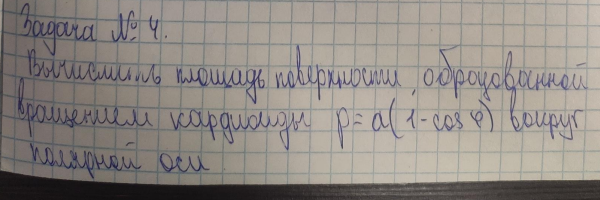 Задача № 4.
Вычислить площадь поверхности, образованной
вращением кардиоиды p=a(1-cos φ) вокруг
полярной оси.